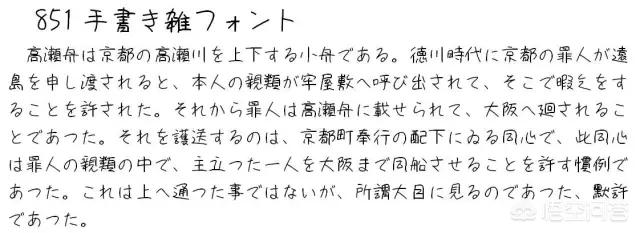 851手書き雑フォント
高瀬舟は京都の高瀬川を上下する小舟である。徳川時代に京都の罪人が遠
島を申し渡されると、本人の親類が牢屋敷へ呼び出されて、そこで暇乞をす
ることを許された。それから罪人は高瀬舟に載せられて、大阪へ廻されるこ
とであつた。それを護送するのは、京都町奉行の配下にゐる同心で、此同心
は罪人の親類の中で、主立つた一人を大阪まで同船させることを許す慣例で
あつた。これは上へ通つた事ではないが、所謂大目に見るのであつた、默許
であつた。
悟空问答